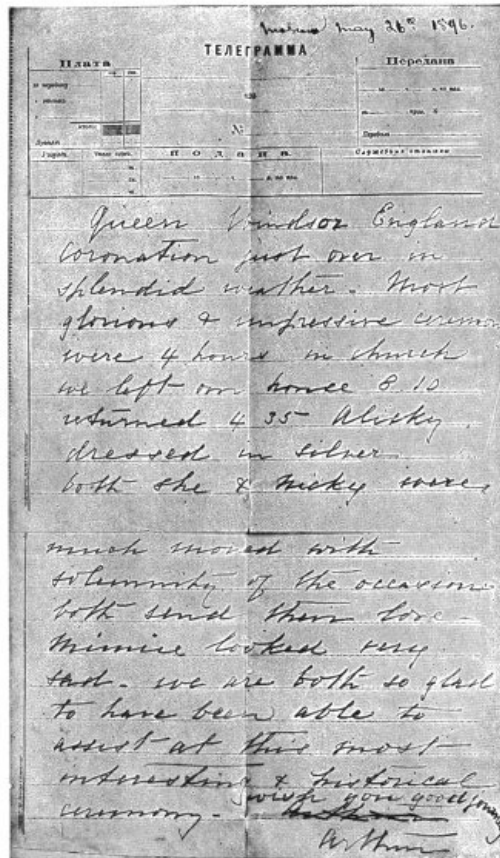 Moscow May 26th 1896.
ТЕЛЕГРАММА
Плата
Передана
№
ПОДАНА
Служебныя отметки
Queen Windsor England
Coronation just over in
splendid weather. Most
glorious & impressive
were 4 hours in church
we left our house 8 10
returned 4 35 Alicky
dressed in silver
both she & Nicky were
much moved with
solemnity of the occasion
both send their love
Minnie looked very
sad. we are both so glad
to have been able to
assist at this most
interesting & historical
wish you good journey
ceremony. Arthur
Arthur